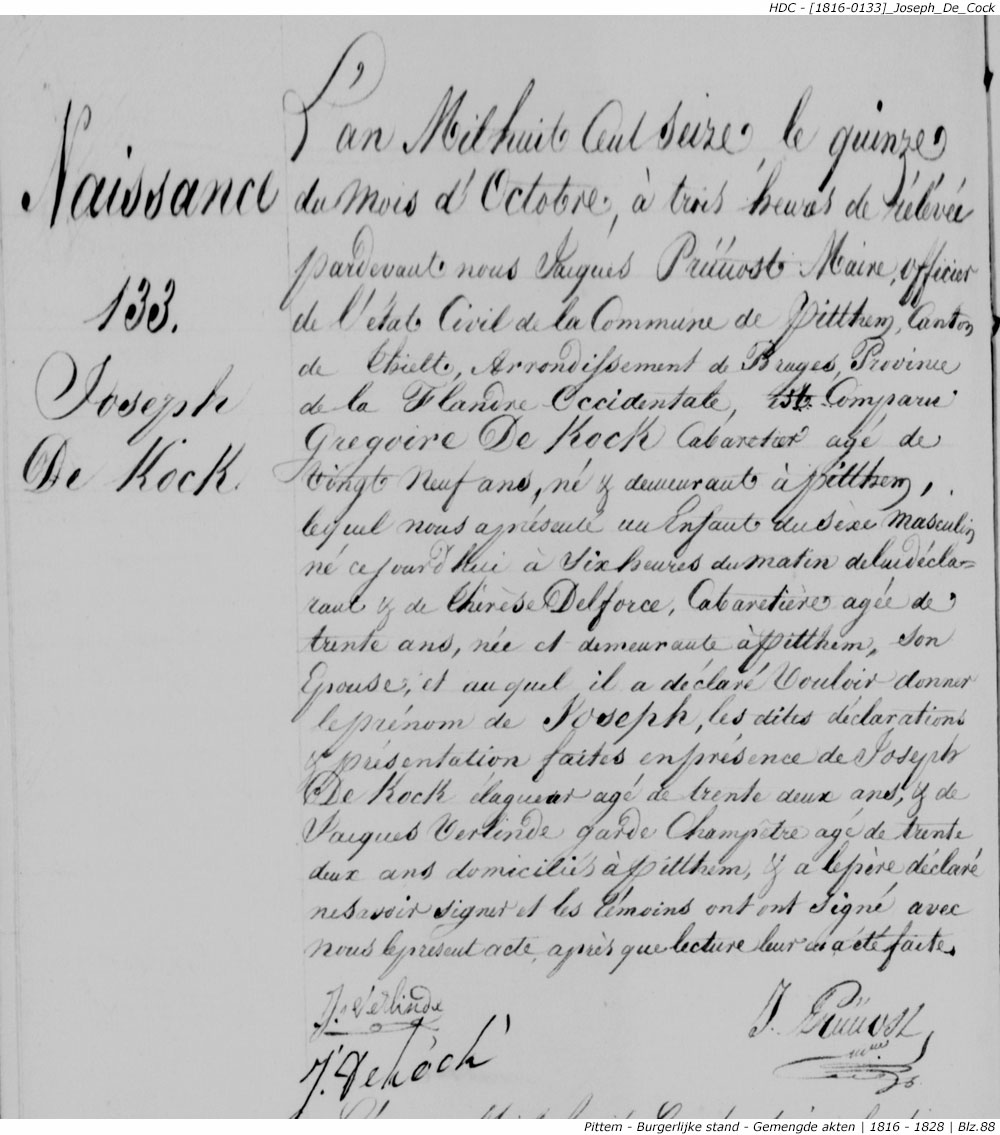 HDC - [1816-0133]_Joseph_De_Cock
Naissance
133.
Joseph
De Kock
L'an Mil huit Cent Seize, le quinze
du mois d'Octobre, à trois heures de rélévée
pardevant nous Jacques Prüuost Maire, officier
de l'état Civil de la Commune de Pitthem, Canton
de Thielt, Arrondissement de Bruges, Province
de la Flandre Occidentale, est Comparu
Gregoire De Kock Cabaretier agé de
vingt Neuf ans, né & demeurant à pitthem,
lequel nous a présenté un Enfant du sèxe masculin
né ce jourd'hui à Six heures du matin de lui décla=
rant & de Thérèse Delforce, Cabaretière agée de
trente ans, née et demeurante à pitthem, son
Epouse, et auquel il a déclaré Vouloir donner
le prénom de Joseph, les dites déclarations
& présentation faites en présence de Joseph
De Kock élagueur agé de trente deux ans, & de
Jacques Verlinde garde Champêtre agé de trente
deux ans domiciliés à pitthem, & a le père déclaré
ne savoir signer et les témoins ont ont signé avec
nous le présent acte, après que lecture leur en a été faite.
J. Verlinde
J. Prüuost
J. De Kock
Pittem - Burgerlijke stand - Gemengde akten | 1816 - 1828 | Blz.88